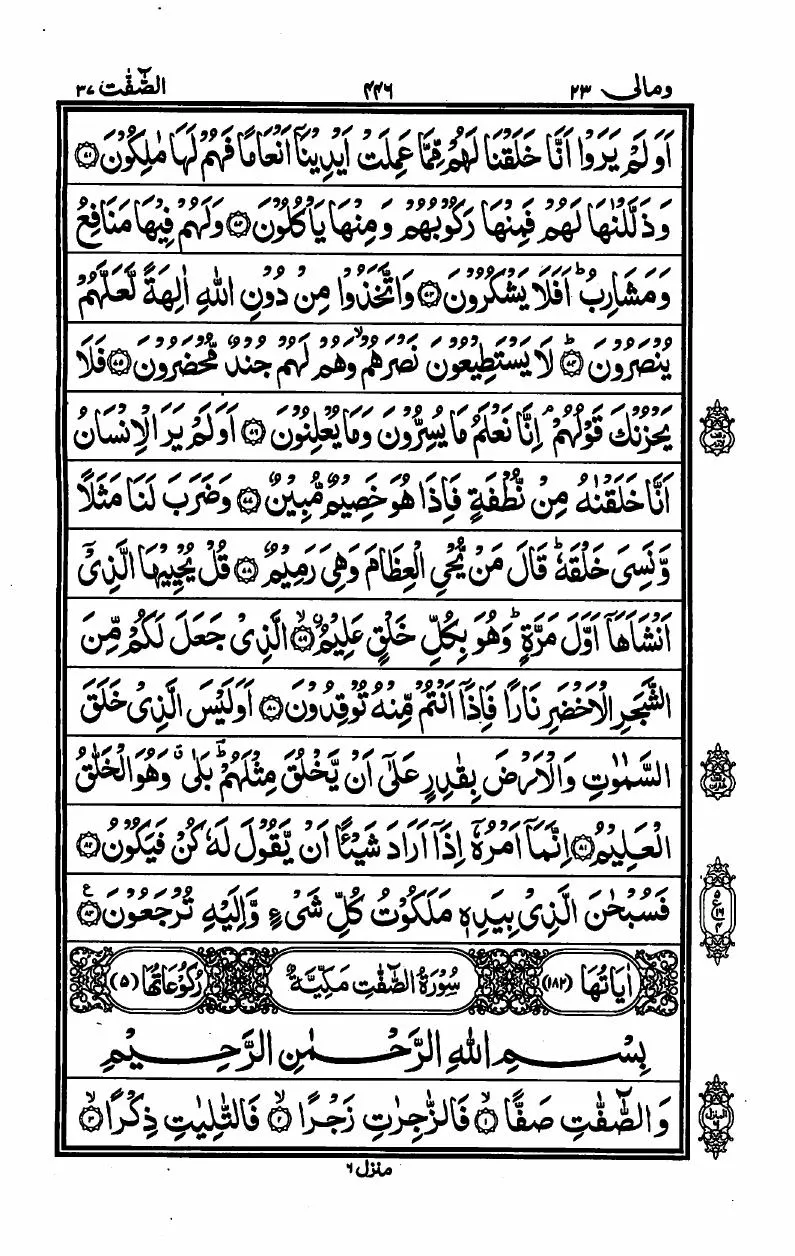 ومالی ٢٣ ٤٤٦ الصّٰٓفّٰت ٣٧
اَوَلَمْ يَرَوْا اَنَّا خَلَقْنَا لَهُمْ مِّمَّا عَمِلَتْ اَيْدِيْنَاۤ اَنْعَامًا فَهُمْ لَهَا مٰلِكُوْنَ ﴿٧١﴾
وَذَلَّلْنٰهَا لَهُمْ فَمِنْهَا رَكُوْبُهُمْ وَمِنْهَا يَاْكُلُوْنَ ﴿٧٢﴾ وَلَهُمْ فِيْهَا مَنَافِعُ
وَمَشَارِبُ ؕ اَفَلَا يَشْكُرُوْنَ ﴿٧٣﴾ وَاتَّخَذُوْا مِنْ دُوْنِ اللّٰهِ اٰلِهَةً لَّعَلَّهُمْ
يُنْصَرُوْنَ ؕ ﴿٧٤﴾ لَا يَسْتَطِيْعُوْنَ نَصْرَهُمْ ۙ وَهُمْ لَهُمْ جُنْدٌ مُّحْضَرُوْنَ ﴿٧٥﴾ فَلَا
يَحْزُنْكَ قَوْلُهُمْ ۘ اِنَّا نَعْلَمُ مَا يُسِرُّوْنَ وَمَا يُعْلِنُوْنَ ﴿٧٦﴾ اَوَلَمْ يَرَ الْاِنْسَانُ
اَنَّا خَلَقْنٰهُ مِنْ نُّطْفَةٍ فَاِذَا هُوَ خَصِيْمٌ مُّبِيْنٌ ﴿٧٧﴾ وَضَرَبَ لَنَا مَثَلًا
وَّنَسِىَ خَلْقَهٗ ؕ قَالَ مَنْ يُّحْىِ الْعِظَامَ وَهِىَ رَمِيْمٌ ﴿٧٨﴾ قُلْ يُحْيِيْهَا الَّذِىْۤ
اَنْشَاَهَاۤ اَوَّلَ مَرَّةٍ ؕ وَهُوَ بِكُلِّ خَلْقٍ عَلِيْمٌ ۙ ﴿٧٩﴾ الَّذِىْ جَعَلَ لَكُمْ مِّنَ
الشَّجَرِ الْاَخْضَرِ نَارًا فَاِذَاۤ اَنْتُمْ مِّنْهُ تُوْقِدُوْنَ ﴿٨٠﴾ اَوَلَيْسَ الَّذِىْ خَلَقَ
السَّمٰوٰتِ وَالْاَرْضَ بِقٰدِرٍ عَلٰۤى اَنْ يَّخْلُقَ مِثْلَهُمْ ؕ بَلٰى ۤ وَهُوَ الْخَلّٰقُ
الْعَلِيْمُ ﴿٨١﴾ اِنَّمَاۤ اَمْرُهٗۤ اِذَاۤ اَرَادَ شَيْئًا اَنْ يَّقُوْلَ لَهٗ كُنْ فَيَكُوْنُ ﴿٨٢﴾
فَسُبْحٰنَ الَّذِىْ بِيَدِهٖ مَلَكُوْتُ كُلِّ شَىْءٍ وَّاِلَيْهِ تُرْجَعُوْنَ ﴿٨٣﴾ ع
اٰيَاتُهَا (١٨٢) سُوْرَةُ الصّٰٓفّٰتِ مَكِّيَّةٌ رُكُوْعَاتُهَا (٥)
بِسْمِ اللّٰهِ الرَّحْمٰنِ الرَّحِيْمِ
وَالصّٰٓفّٰتِ صَفًّا ۙ ﴿١﴾ فَالزّٰجِرٰتِ زَجْرًا ۙ ﴿٢﴾ فَالتّٰلِيٰتِ ذِكْرًا ۙ ﴿٣﴾
منزل ٦